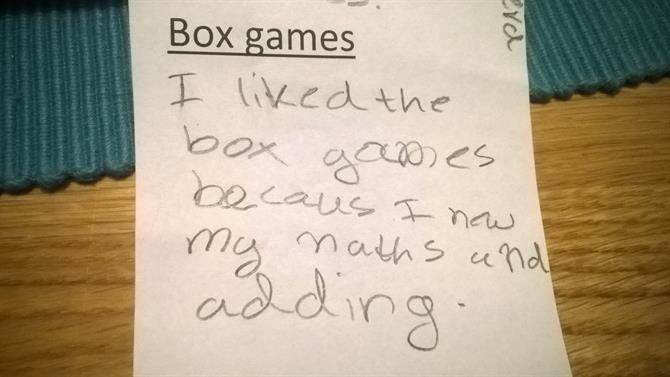 Box games
I liked the
box games
becaus I new
my maths and
adding.